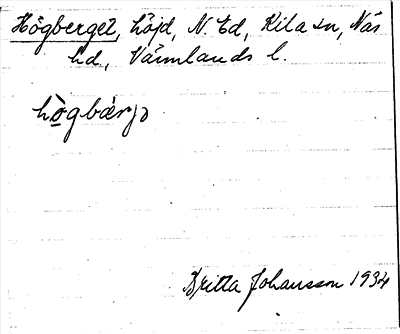 Högberget, höjd, N. Ed, Kila sn, Näs
hd., Värmlands l.
hògbærjə
Britta Johansson 1934